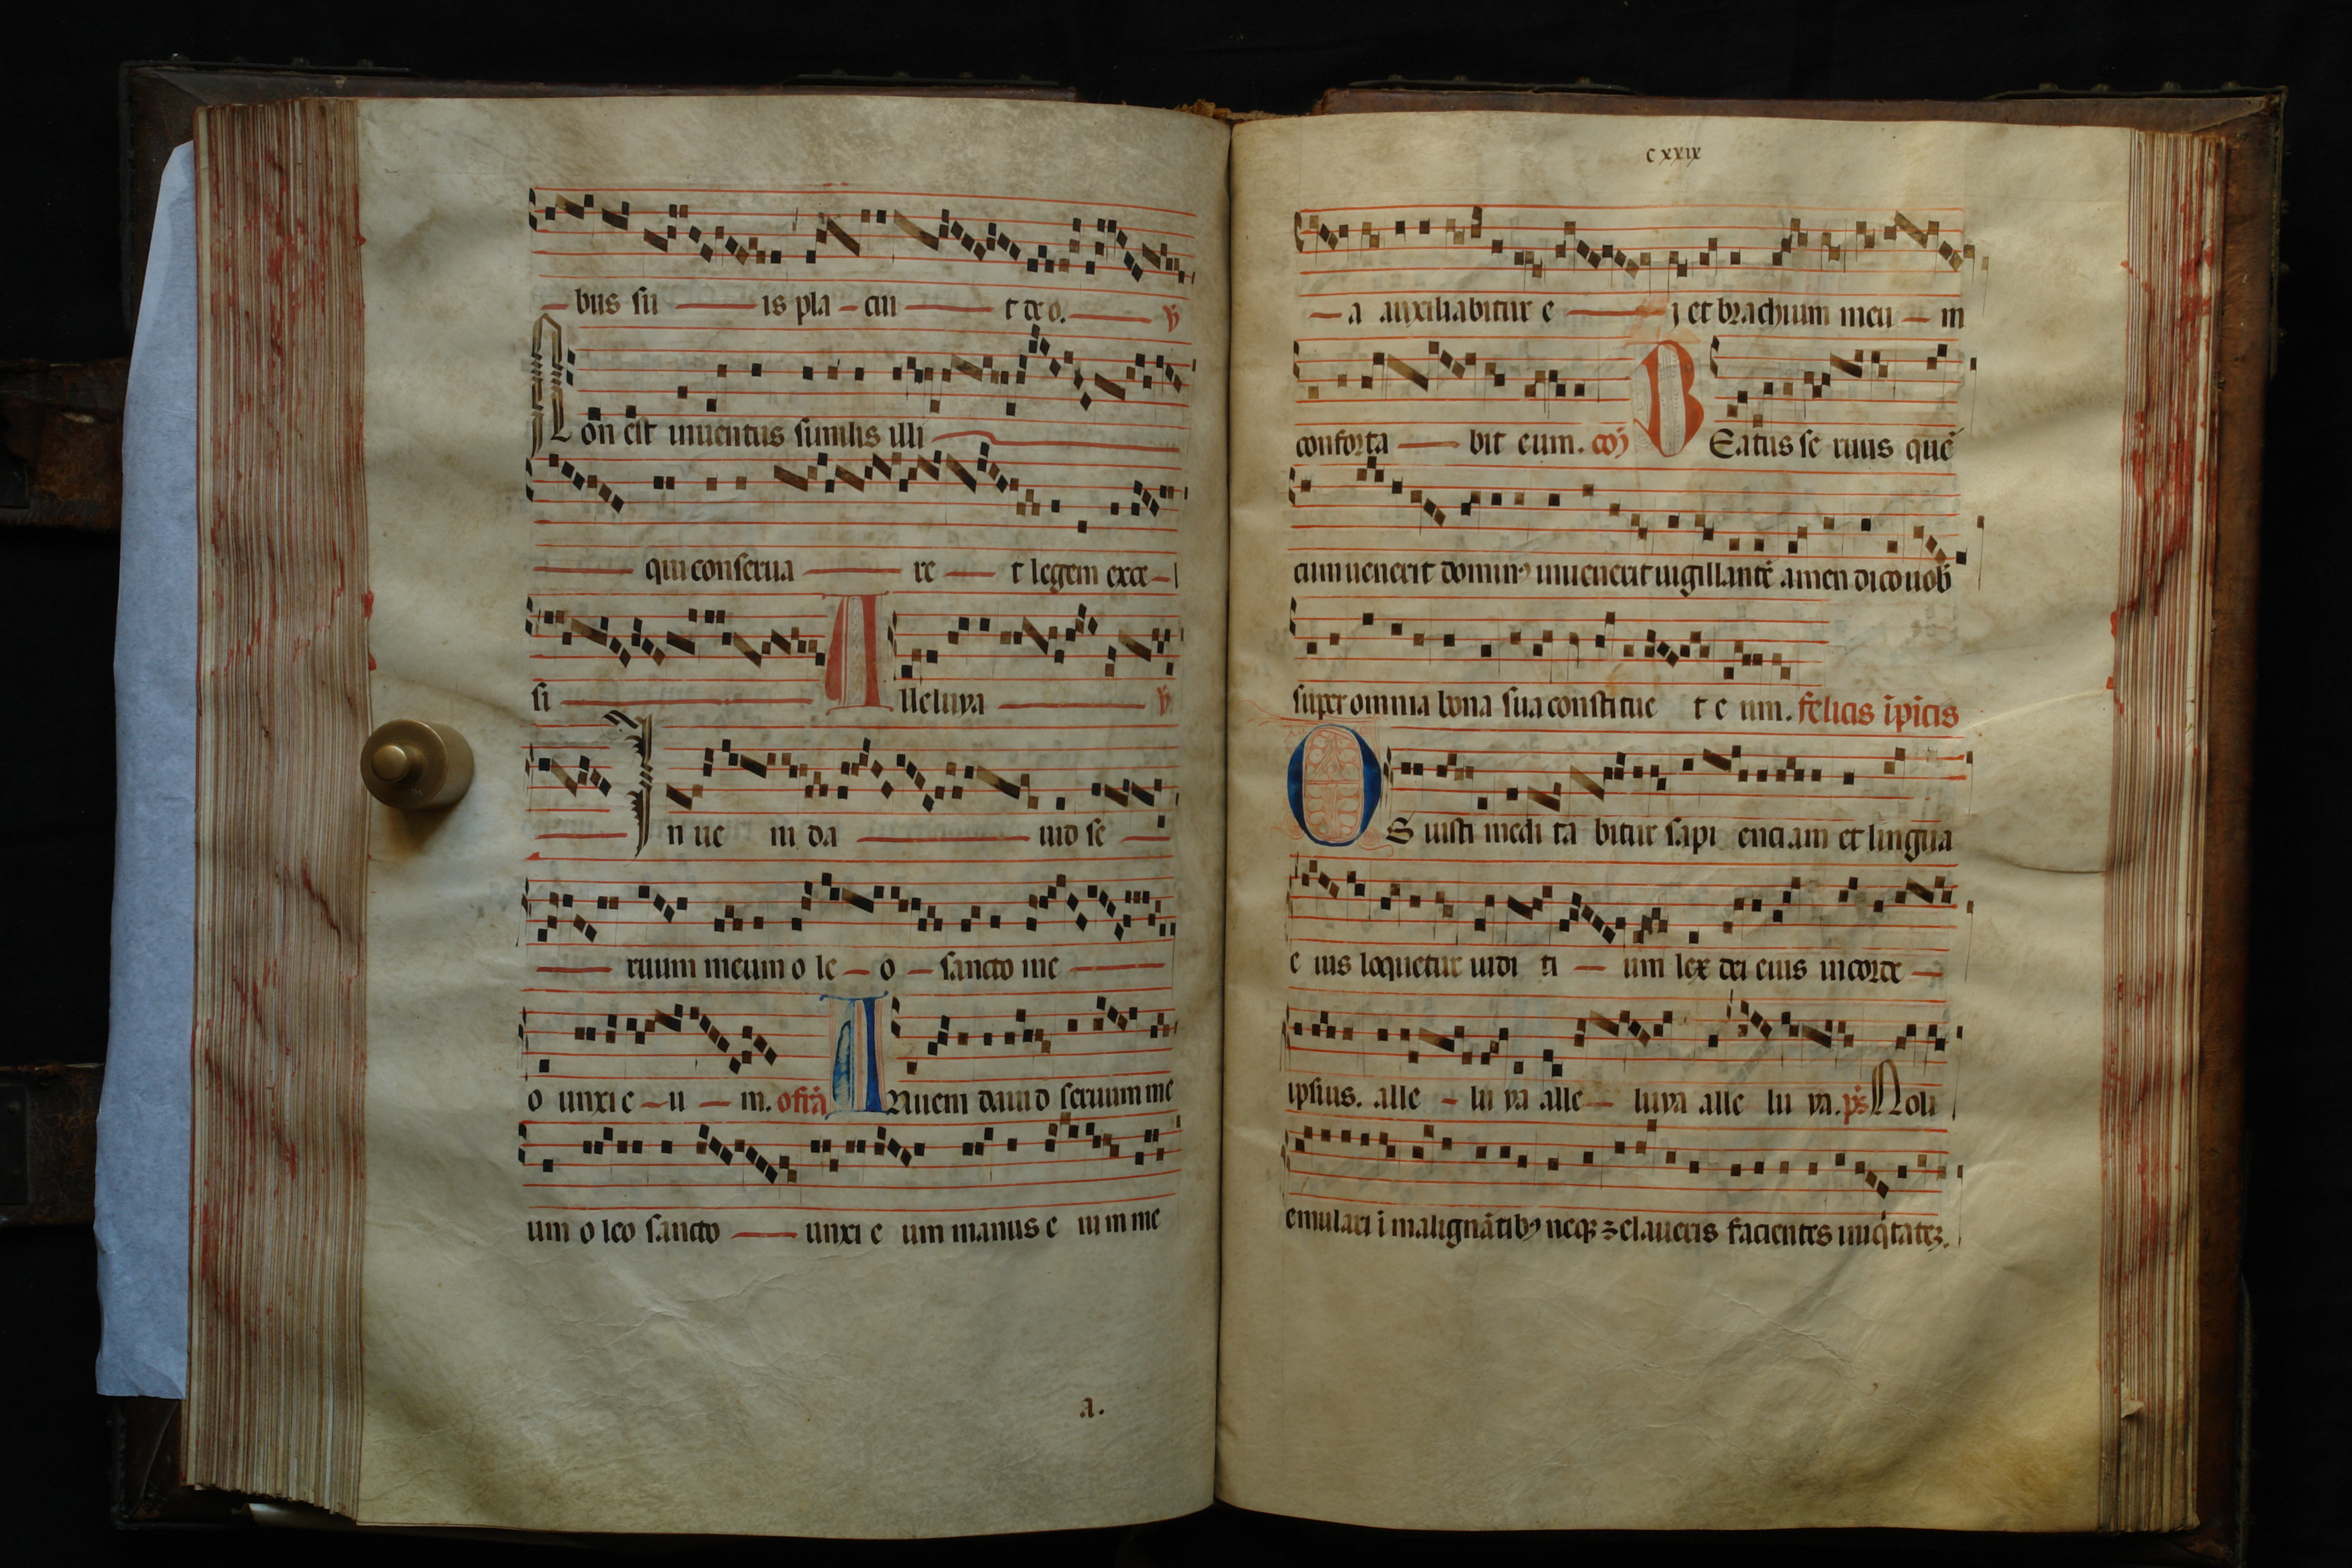 bus su is pla cui t deo. ℣
Non est inuentus similis illi
qui conserua re t legem exce
si Alleluya ℣
Inue ni da uid se
ruum meum o le o sancto me
o unxi e u m. offrā Inueni dauid seruum me
um o leo sancto unxi e um manus e nim me
a.
cxxix
a auxiliabitur e j et brachium meu m
conforta bit eum. cōj BEatus se ruus quē
cum uenerit domin⁹ inuenerit uigillantē amen dico uob̄
super omnia bona sua constitue t e um. felicis īpīcis
OS iusti medi ta bitur sapi enciam et lingua
e ius loquetur iudi ti um lex dei eius in corde
ipsius. alle lu ya alle luya alle lu ya. p̄s Noli
emulari ī malignātib⁹ neqꝫ zelaueris facientes iniq̇tatēꝫ.